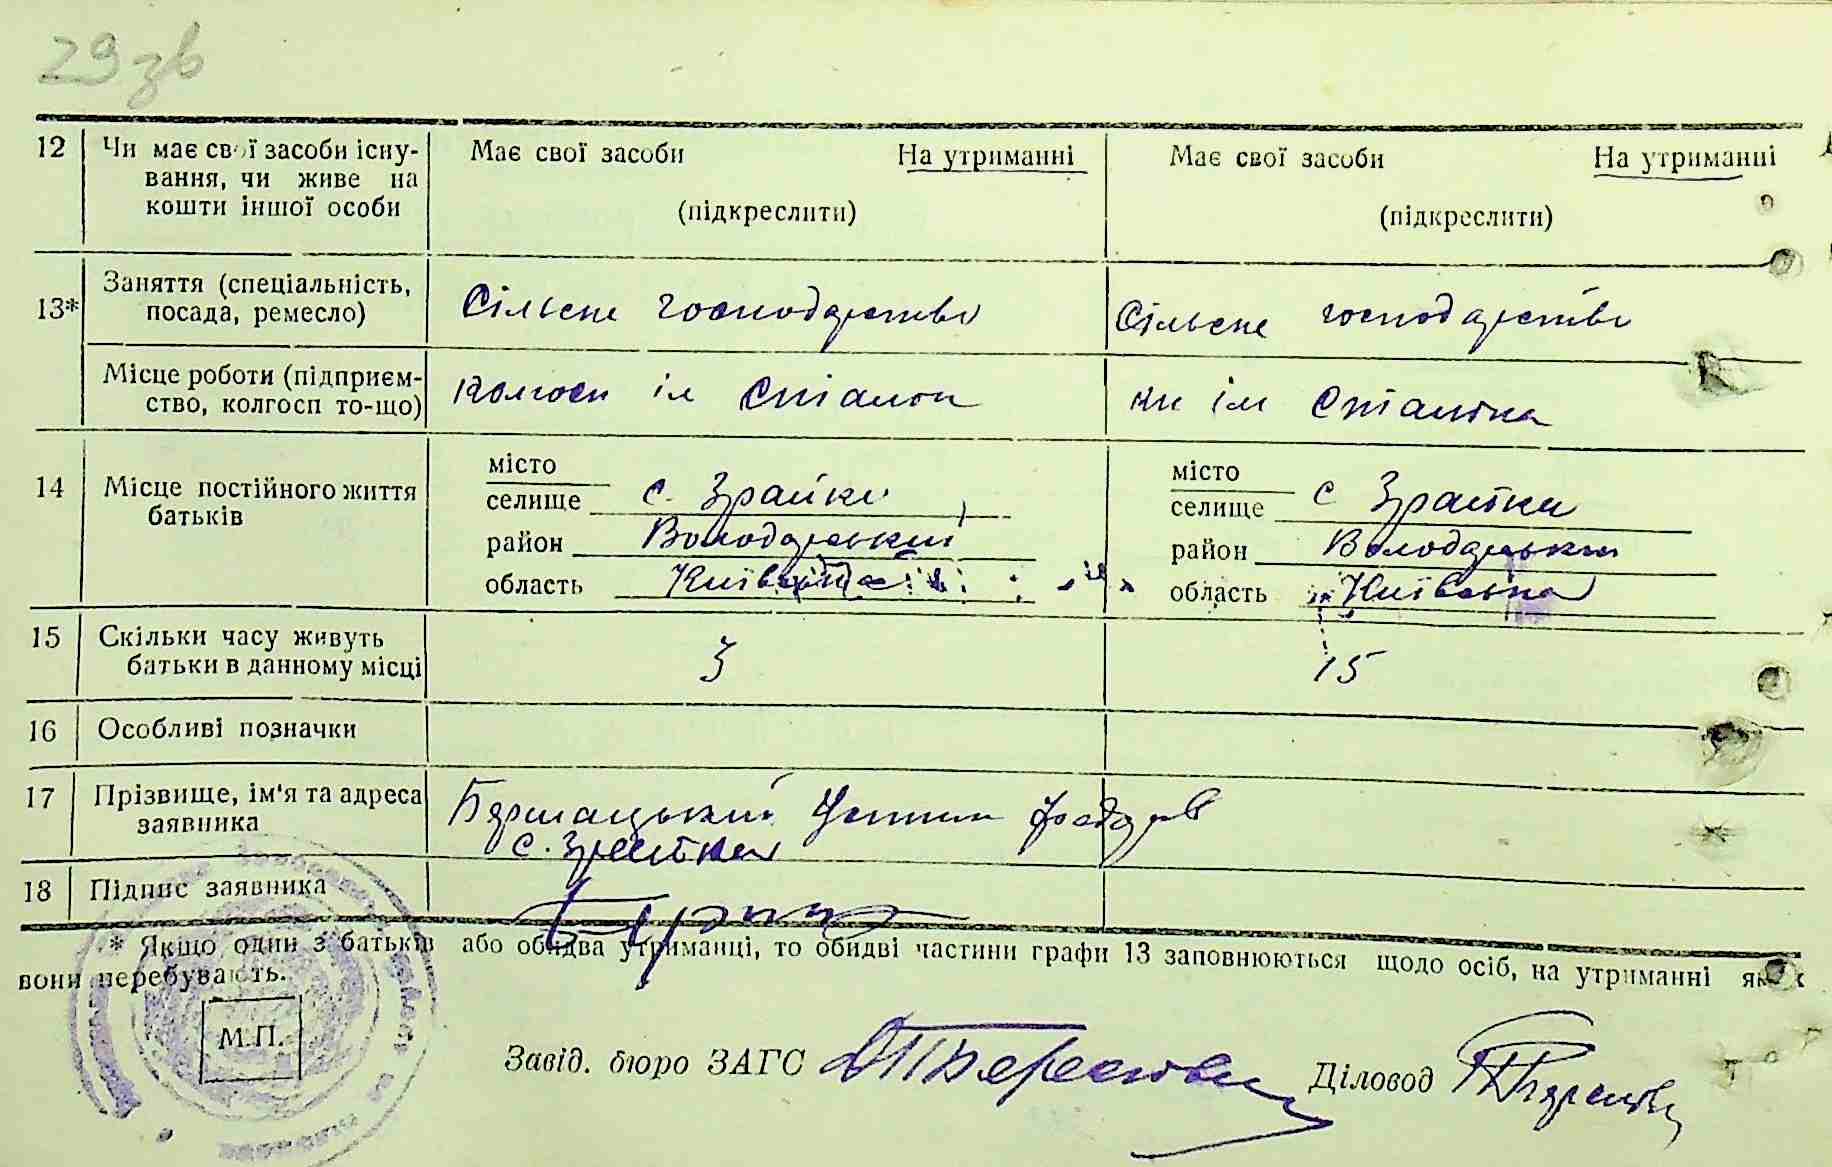 29 зв
12 Чи має свої засоби існу- Має свої засоби На утриманні Має свої засоби На утриманні
вання, чи живе на
кошти іншої особи (підкреслити) (підкреслити)
Заняття (спеціальність, Сільське господарство Сільське господарство
13* посада, ремесло)
Місце роботи (підприєм- колгосп ім Сталіна кп ім Сталіна
ство, колгосп то-що)
місто місто
14 Місце постійного життя селище с. Зрайки селище с Зрайки
батьків район Володарський район Володарський
область Київська область Київська
15 Скільки часу живуть 3 15
батьки в данному місці
16 Особливі позначки
17 Прізвище, ім'я та адреса Устин Федор
заявника с. Зрайки
18 Підпис заявника
* Якщо один з батьків або обидва утриманці, то обидві частини графи 13 заповнюються щодо осіб, на утриманні яких
вони перебувають.
М.П.
Завід. бюро ЗАГС Діловод